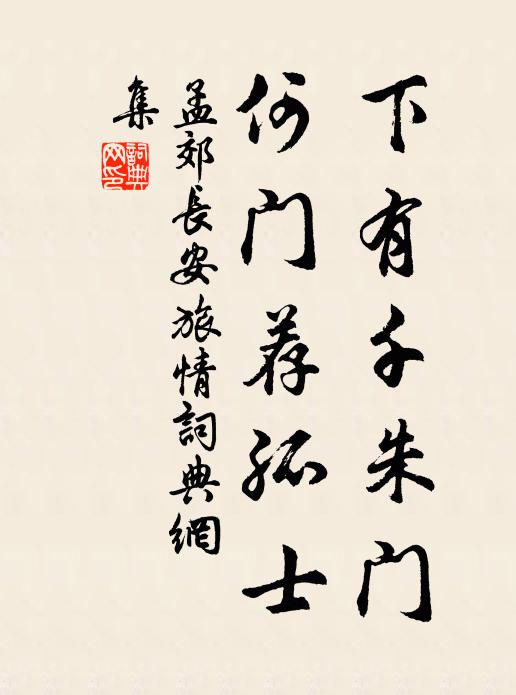 下有千朱门
何门荐孤士
孟郊長安旅情詞典網
集
詞典网印